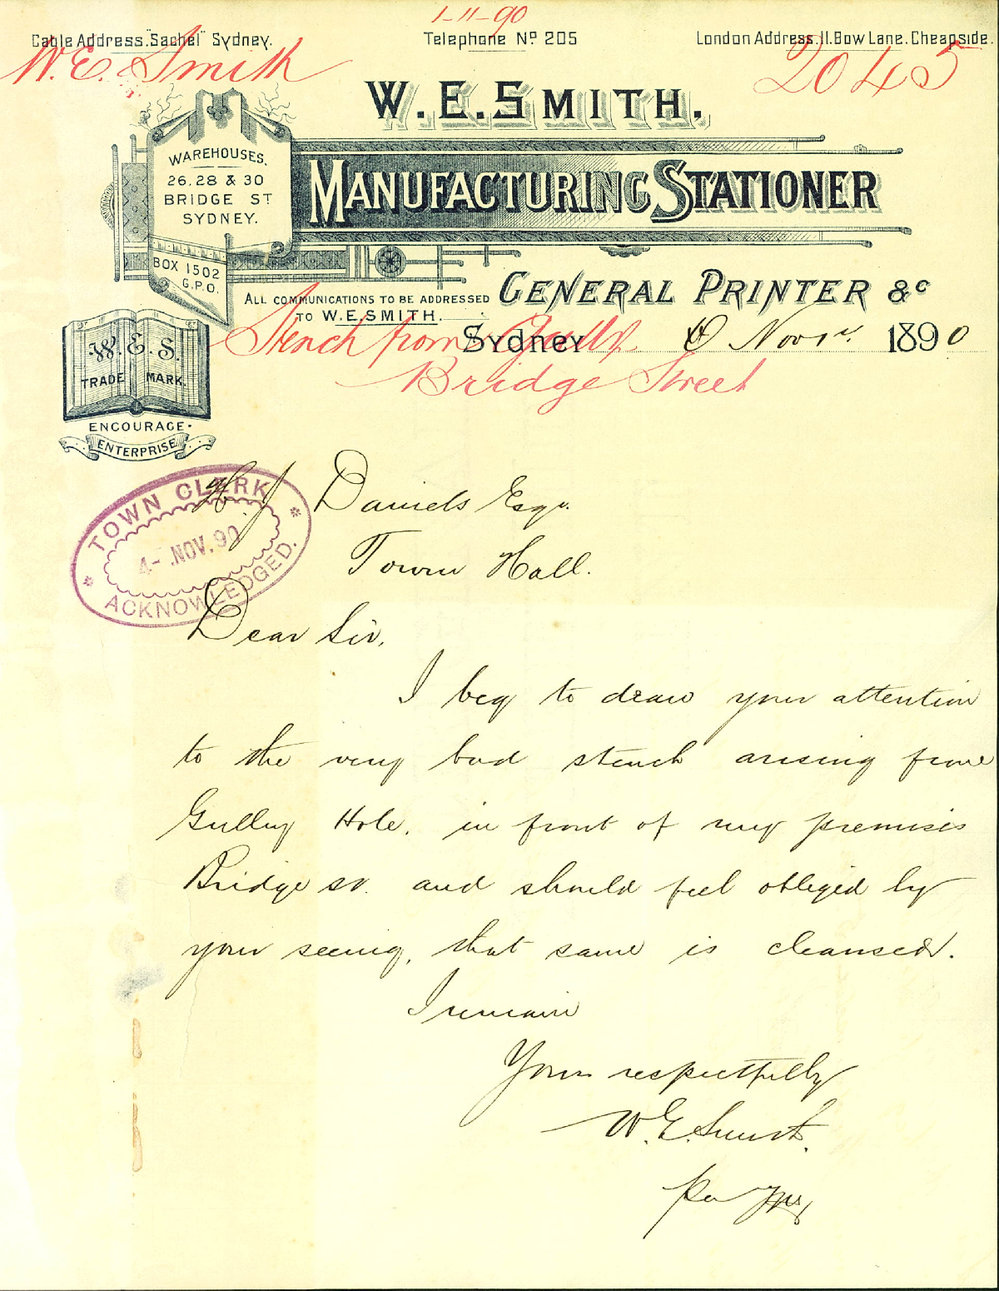 1-11-90
Cable Address "Sachel" Sydney.
Telephone Nº 205
London Address, 11. Bow Lane. Cheapside.
W. E. Smith
2045
W. E. SMITH.
MANUFACTURING STATIONER
WAREHOUSES,
26, 28 & 30
BRIDGE ST
SYDNEY.
BOX 1502
G.P.O.
GENERAL PRINTER &c
ALL COMMUNICATIONS TO BE ADDRESSED
TO W. E. SMITH.
Stench from Gully
Sydney Novr 1890
Bridge Street
W. E. S.
TRADE MARK.
ENCOURAGE
ENTERPRISE
TOWN CLERK
4 - NOV. 90
ACKNOWLEDGED.
H. J Daniels Esqr
Town Hall.
Dear Sir,
I beg to draw your attention
to the very bad stench arising from
Gulley Hole, in front of my premises
Bridge St. and should feel obliged by
your seeing, that same is cleansed.
I remain
Yours respectfully
W. E. Smith.
Per